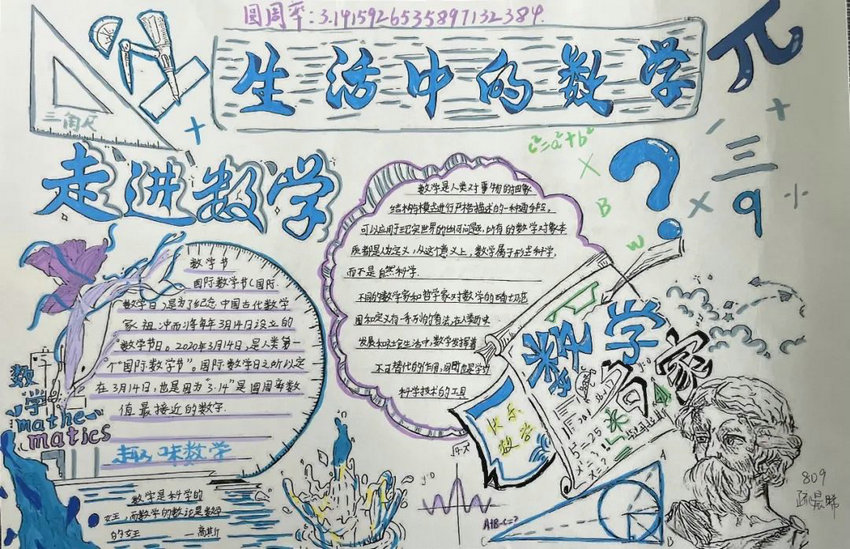 圆周率:3.1415926535897132384.
生活中的数学
π
三角尺
c²=a²+b²
走进数学
?
三
9
B
W
数学节
国际数学节(国际
数学日)是为了纪念中国古代数学
家祖冲而将每年3月14日设立的
"数学节日。2020年3月14日,是人类第一
个"国际数学节"。国际数学日之所以定
在3月14日,也是因为"3.14"是圆周率数
值最接近的数字.
趣味数学
数学
mathe-
matics
数学是科学的
女王,而数学的数论是数学
的女王 —高斯
数学是人类对事物的抽象
结构与模式进行严格描述的一种通用手段,
可以应用于现实世界的任何问题,所有的数学对象本
质都是人为定义,从这个意义上,数学属于形式科学,
而不是自然科学.
不同的数学家和哲学家对数学的确切范
围和定义有一系列的看法,在人类历史
发展和社会生活中,数学发挥着
不可替代的作用,同时也是学习
科学技术的工具
数学
名家
快乐
数学
5=25
A
B
C
809